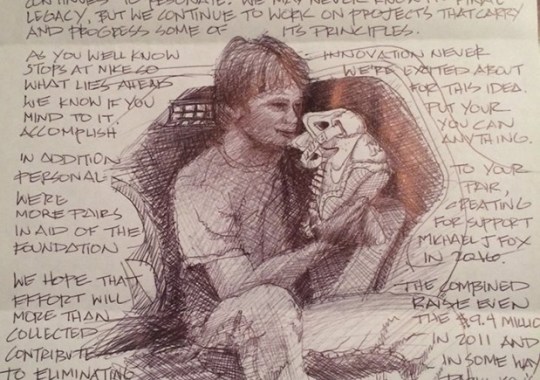 TO RESONATE. WE MAY NEVER KNOW
LEGACY, BUT WE CONTINUE TO WORK ON PROJECTS THAT CARRY
AND PROGRESS SOME OF ITS PRINCIPLES.
AS YOU WELL KNOW INNOVATION NEVER
STOPS AT NIKE SO WE'RE EXCITED ABOUT
WHAT LIES AHEAD FOR THIS IDEA.
WE KNOW IF YOU PUT YOUR
MIND TO IT, YOU CAN
ACCOMPLISH ANYTHING.
IN ADDITION TO YOUR
PERSONAL PAIR,
WE'RE CREATING
MORE PAIRS FOR SUPPORT
IN AID OF THE MICHAEL J FOX
FOUNDATION IN 2016.
WE HOPE THAT THE COMBINED
EFFORT WILL RAISE EVEN
MORE THAN THE $9.4 MILLIO
COLLECTED IN 2011 AND
CONTRIBUTE IN SOME WAY
TO ELIMINATING